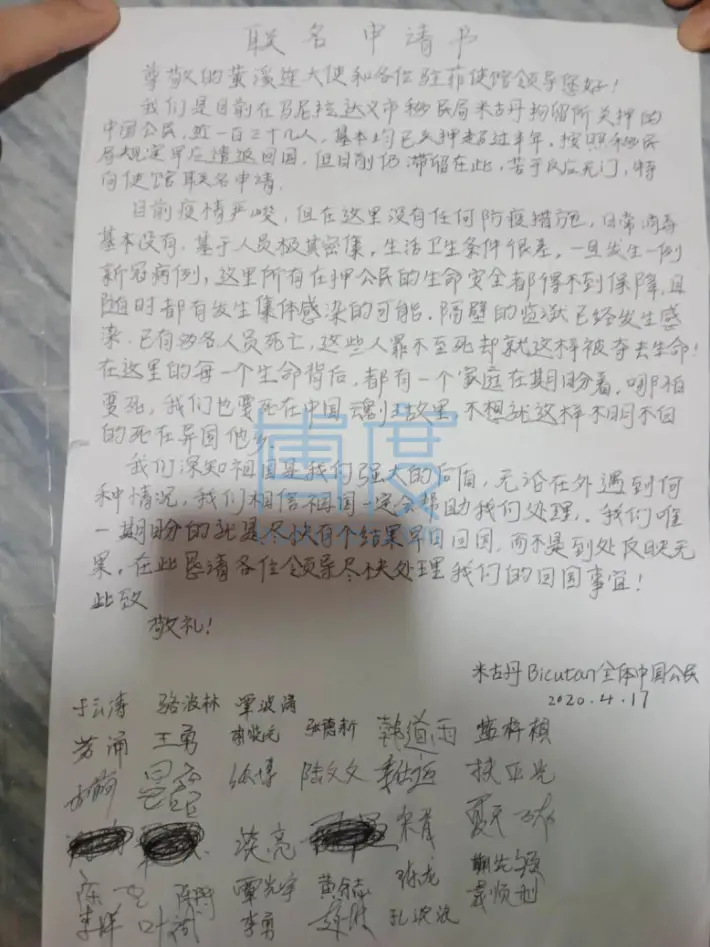 联名申请书
尊敬的黄溪连大使和各位驻菲使馆领导您好！
我们是目前在马尼拉达义市移民局米古丹拘留所关押的
中国公民，近一百三十几人，基本均已关押超过半年，按照移民
局规定早应遣返回国，但目前仍滞留在此，苦于反应无门，特
向使馆联名申请。
目前疫情严峻，但在这里没有任何防疫措施，日常消毒
基本没有，基于人员极其密集，生活卫生条件很差，一旦发生一例
新冠病例，这里所有在押公民的生命安全都得不到保障，且
随时都有发生集体感染的可能，隔壁的监狱已经发生感
染，已有多名人员死亡，这些人罪不至死却就这样被夺去生命！
在这里的每一个生命背后，都有一个家庭在期盼着，哪怕
要死，我们也要死在中国魂归故里，不想就这样不明不白
的死在异国他乡。
我们深知祖国是我们强大的后盾，无论在外遇到何
种情况，我们相信祖国一定会帮助我们处理，我们唯
一期盼的就是尽快有个结果早日回国，而不是到处反映无
果，在此恳请各位领导尽快处理我们的回国事宜！
此致
敬礼！
米古丹Bicutan全体中国公民
2020.4.17
于云涛 骆波林 覃波涌
芳涌 王勇 李晓元 张德新 韩道雨
张博 陆文文
淡亮
覃光宇 黄 陈龙
李勇
百度